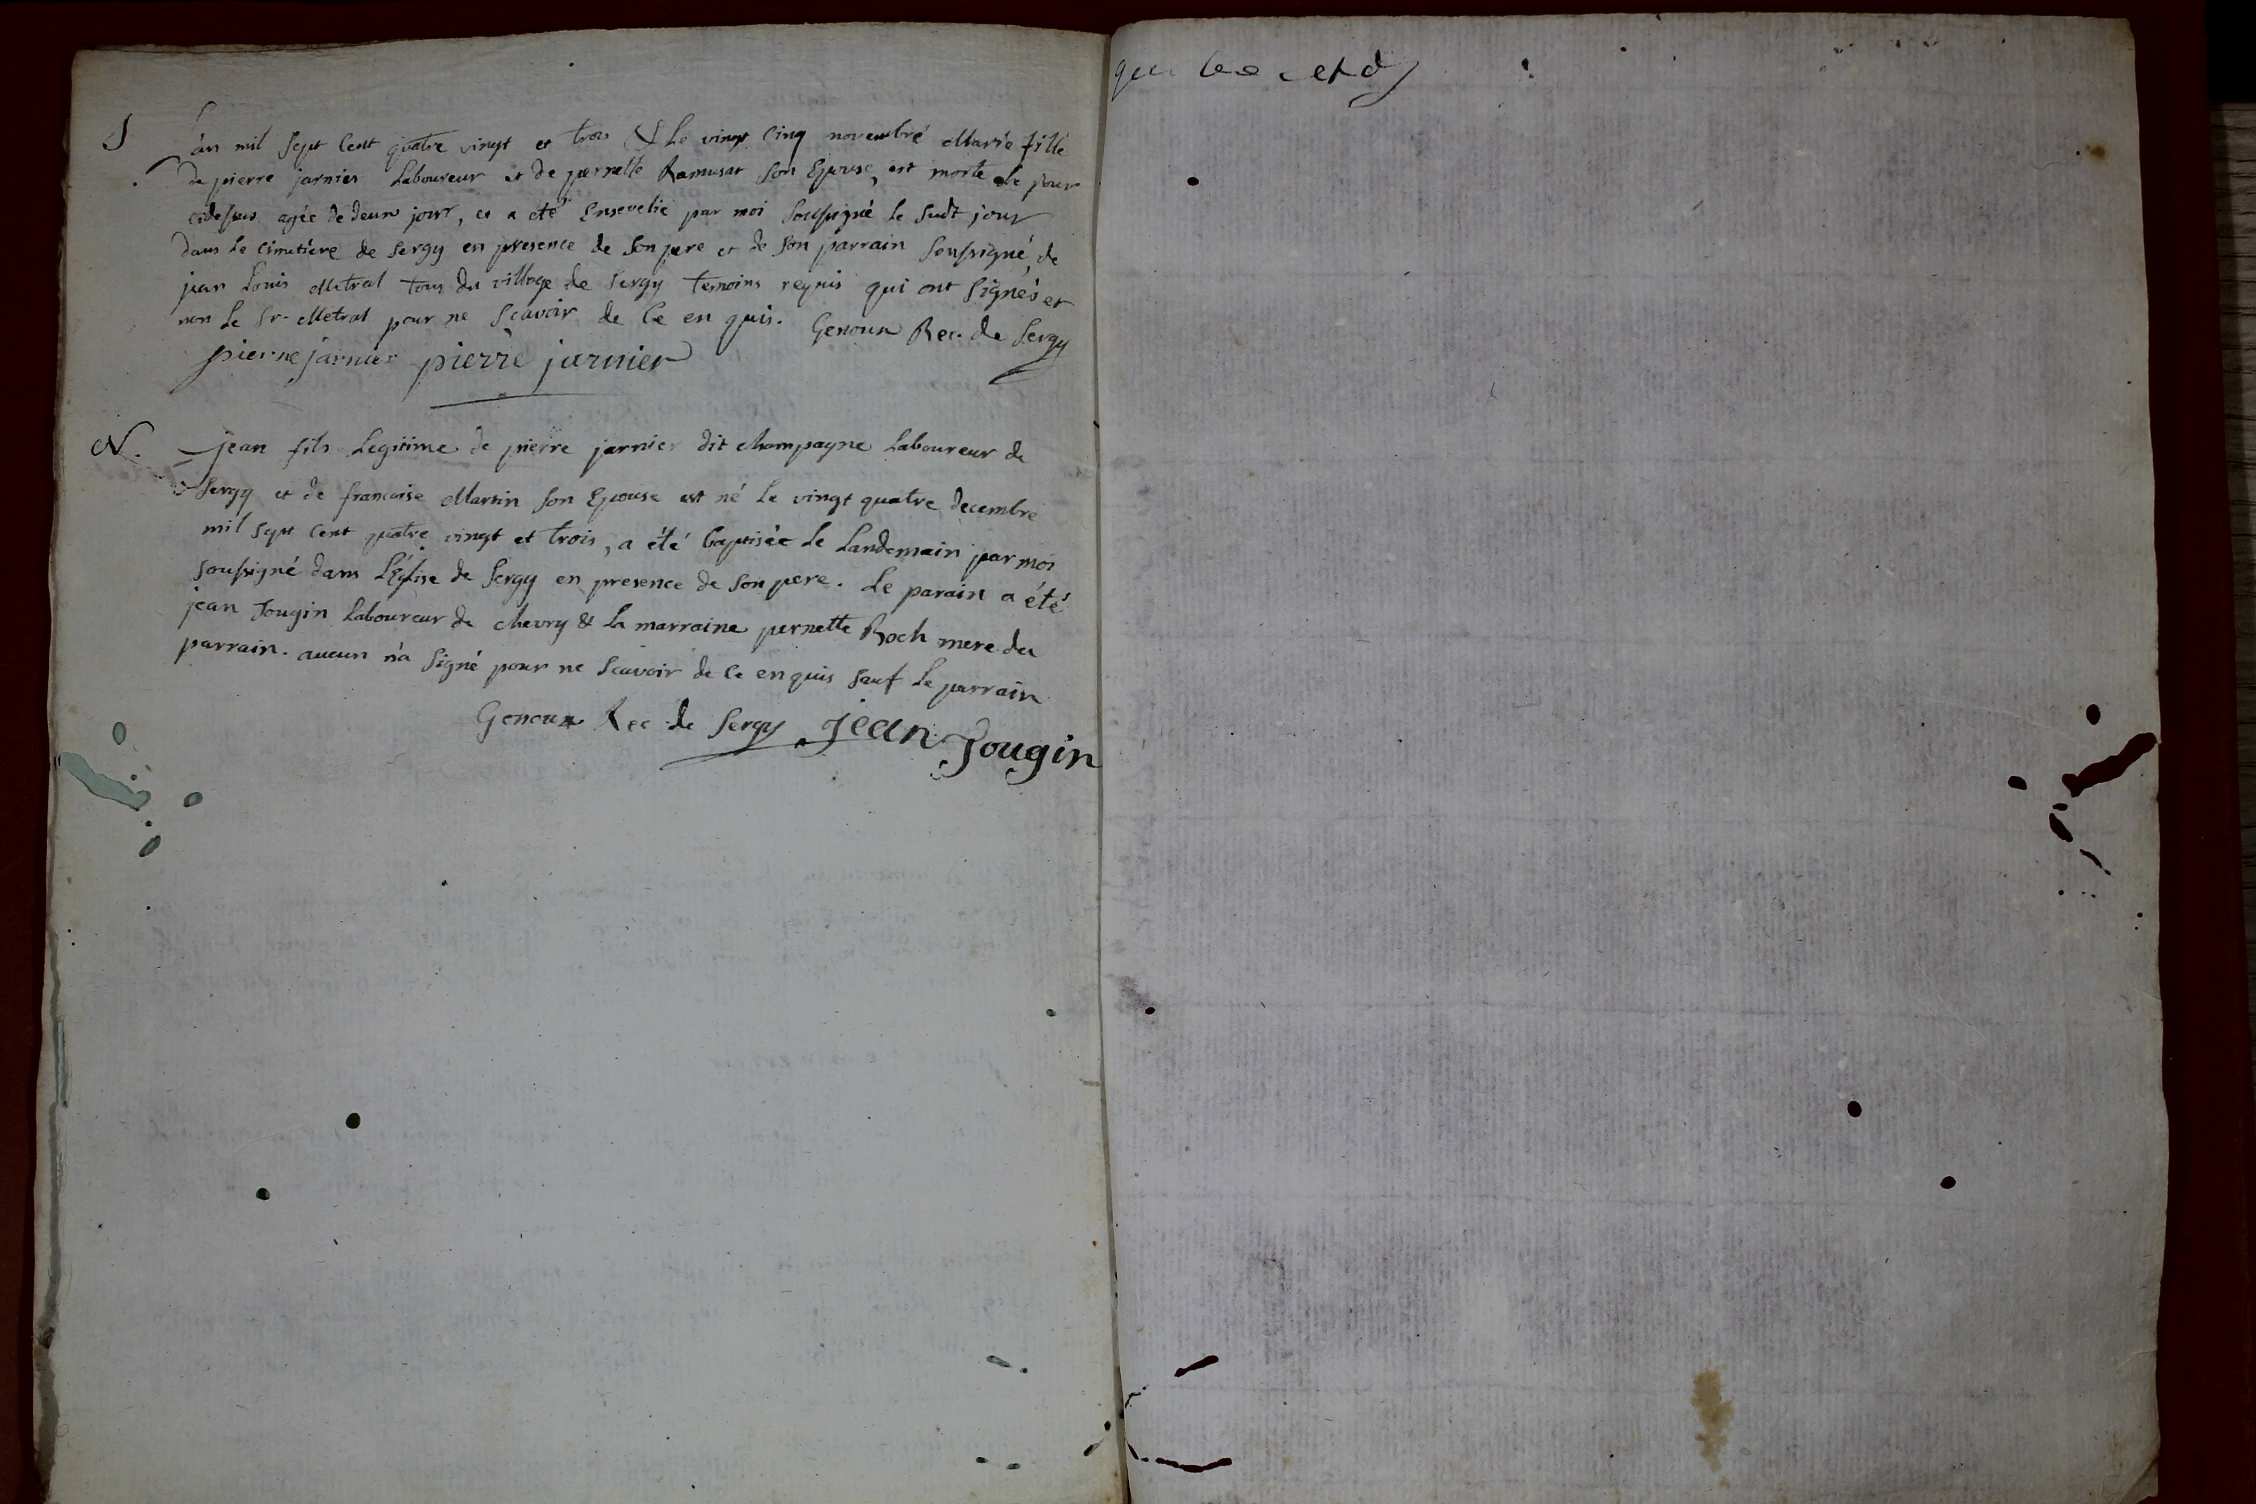 S L'an mil sept cent quatre vingt et trois & le vingt cinq novembre Marie fille
de pierre jarnier Laboureur et de pernette Ramusat son Epouse, est morte le jour
cidessus agée de deux jour, et a été Ensevelie par moi soussigné le sudt jour
dans le cimetiere de Sergy en presence de son pere et de son parrain soussigné, de
jean Louis Metral tous du village de Sergy temoins requis qui ont signés et
non le Sr. Metral pour ne scavoir de ce en quis. Genoux Rec. de Sergy
pierre jarnier pierre jarnier
N. jean fils Legitime de pierre jarnier dit champagne Laboureur de
Sergy et de francoise Martin son Epouse est né le vingt quatre decembre
mil sept cent quatre vingt et trois, a été baptisée le Landemain par moi
soussigné dans L'Église de Sergy en presence de son pere. Le parain a été
jean Jougin Laboureur de chevry & la marraine pernette Roch mere du
parrain. aucun n'a signé pour ne scavoir de ce en quis sauf le parrain
Genoux Rec de Sergy jean Jougin